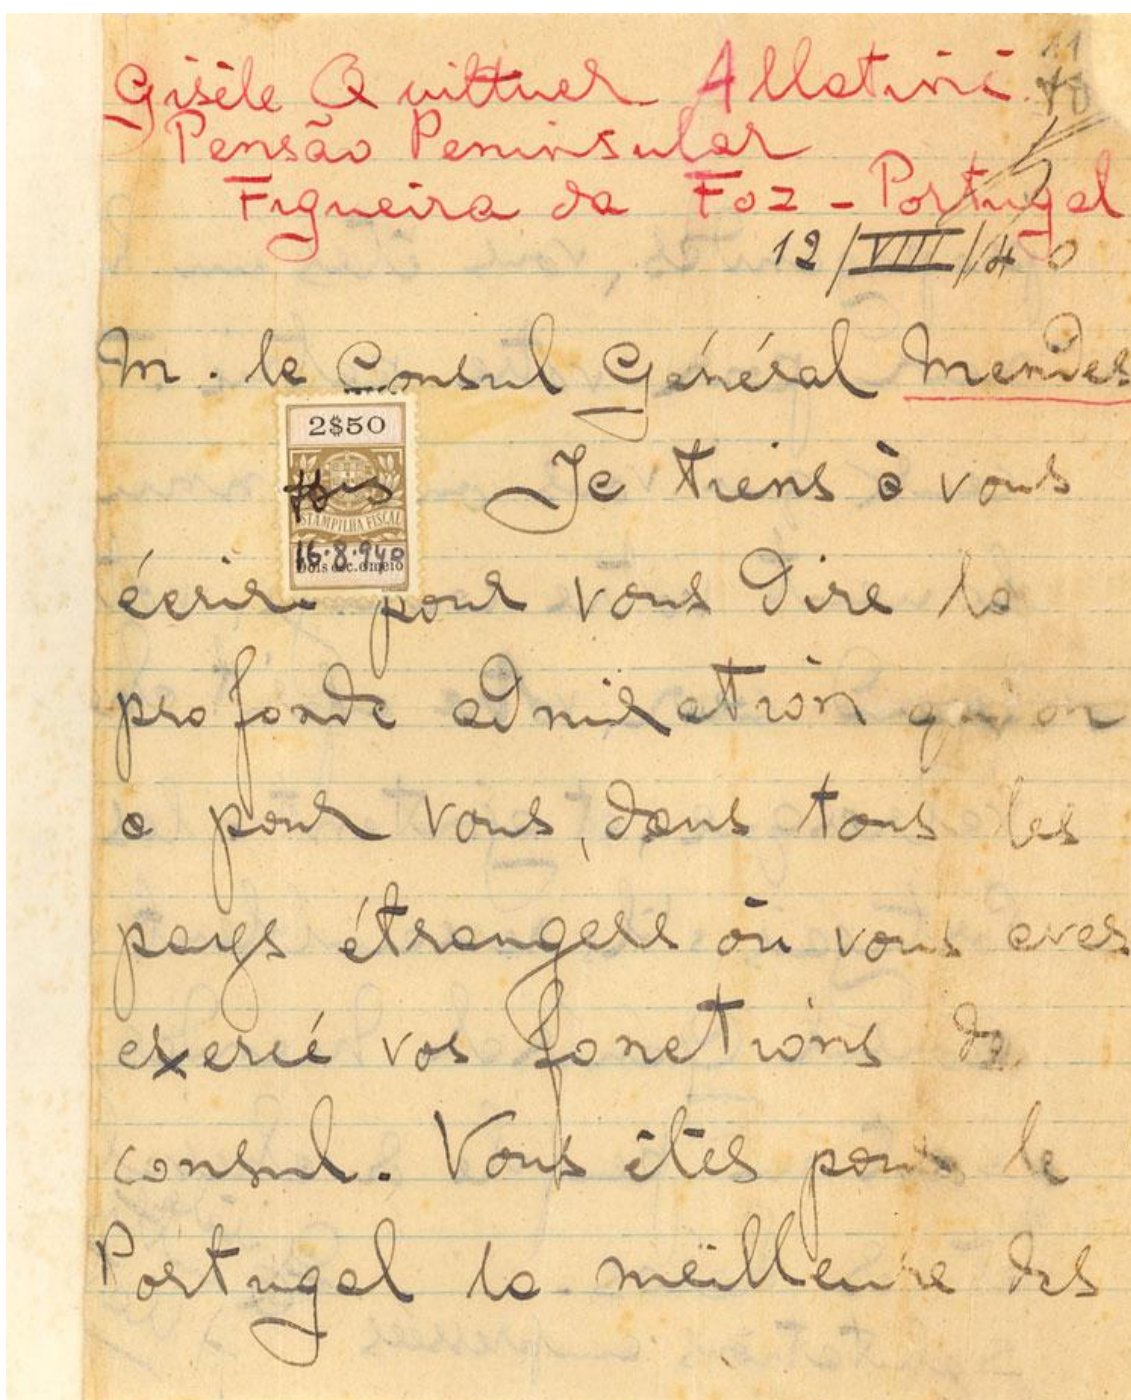 11
Gisèle Quittner Allatini.
Pensão Peninsular
Figueira da Foz - Portugal
12/VIII/40
M. le Consul Général Mendes
2$50
Je tiens à vous
ESTAMPILHA FISCAL
16-8-940
Dois esc. e meio
écrire pour vous dire la
profonde admiration qu'on
a pour vous, dans tous les
pays étrangers où vous avez
exercé vos fonctions de
consul. Vous êtes pour le
Portugal la meilleure des